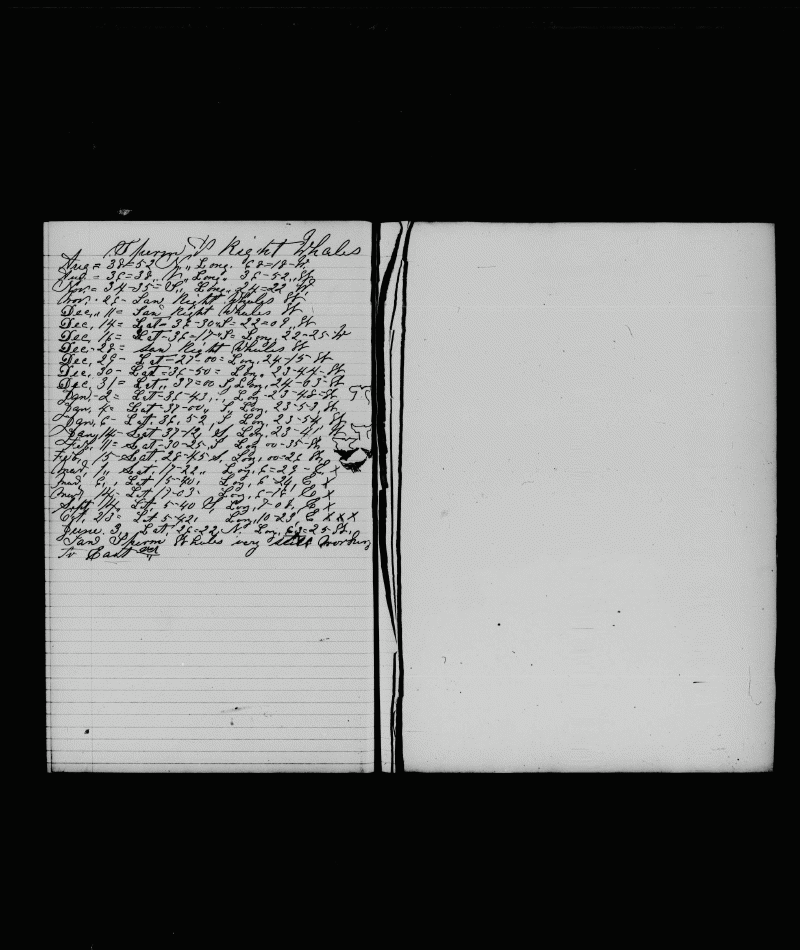 Sperm & Right Whales
Aug = 38=52 N,, Long. 68=18-W
Aug. = 36=38,, N,, Long. 36-52,, W
Nov. = 34-35= S,, Long,, 24=22 W
Nov. 26- Saw Right Whales W
Dec,, 11= Saw Right Whales W
Dec, 14= Lat- 36-30=S= 22=09,, W
Dec, 16= Lat-36=17"S= Lon, 22-25-W
Dec- 28= Saw Right Whales W
Dec, 29- Lat=37-00= Lon, 24-15-W
Dec, 30- Lat=36-50= Lon. 23-44-W
Dec, 31= Lat,, 37=00 S Lon, 24-03-W
Jan,-2= Lat-36-43, Lon-23-48-W
Jan, 4= Lat-37-00,, S, Lon, 23-53, W
Jan, 6- Lat. 36, 52, S Lon, 23-54, W
Jany 14- Lat 37-12, S, Lon, 23-41 W
Feb, 11= Lat-30-25, S Lon, 00-35-W
Feb, 15- Lat, 28-45 S, Lon, 00-26 W
Mar, 1, Lat, 17-22,, Lon, 6=28- E x
Mar, 6, Lat 15-40, Lon, 6-24, E x
Mar, 14- Lat 17-03- Lon, 6-16, E, x
Sept, 14, Lat, 5-40 S, Lon, 7-08, E, x
Oct, 23= Lat 5-42, Lon, 10-23, E x x x
June. 3, Lat, 26=22, N. Lon, 63=25-W,
Saw Sperm Whales very working
To East